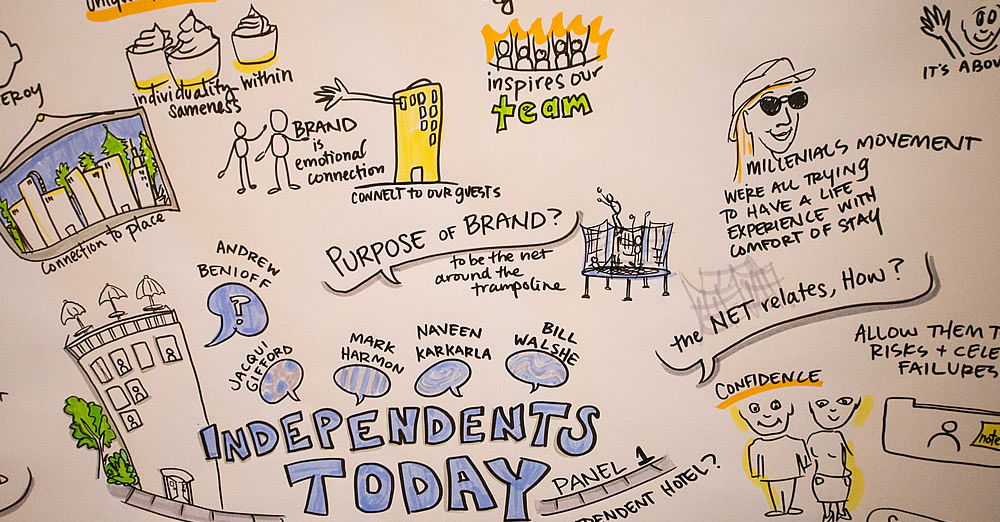 individuality within
sameness
inspires our
team
IT'S
BRAND
is
emotional
connection
CONNECT TO OUR GUESTS
MILLENIALS MOVEMENT
WERE ALL TRYING
TO HAVE A LIFE
EXPERIENCE WITH
COMFORT OF STAY
Connection to place
PURPOSE OF BRAND?
to be the net
around the
trampoline
the NET relates, HOW?
ANDREW
BENIOFF
?
JACQUI
GIFFORD
MARK
HARMON
NAVEEN
KARKARLA
BILL
WALSHE
INDEPENDENTS
TODAY
PANEL 1
HOTEL?
ALLOW THEM
RISKS +
FAILURES
CONFIDENCE